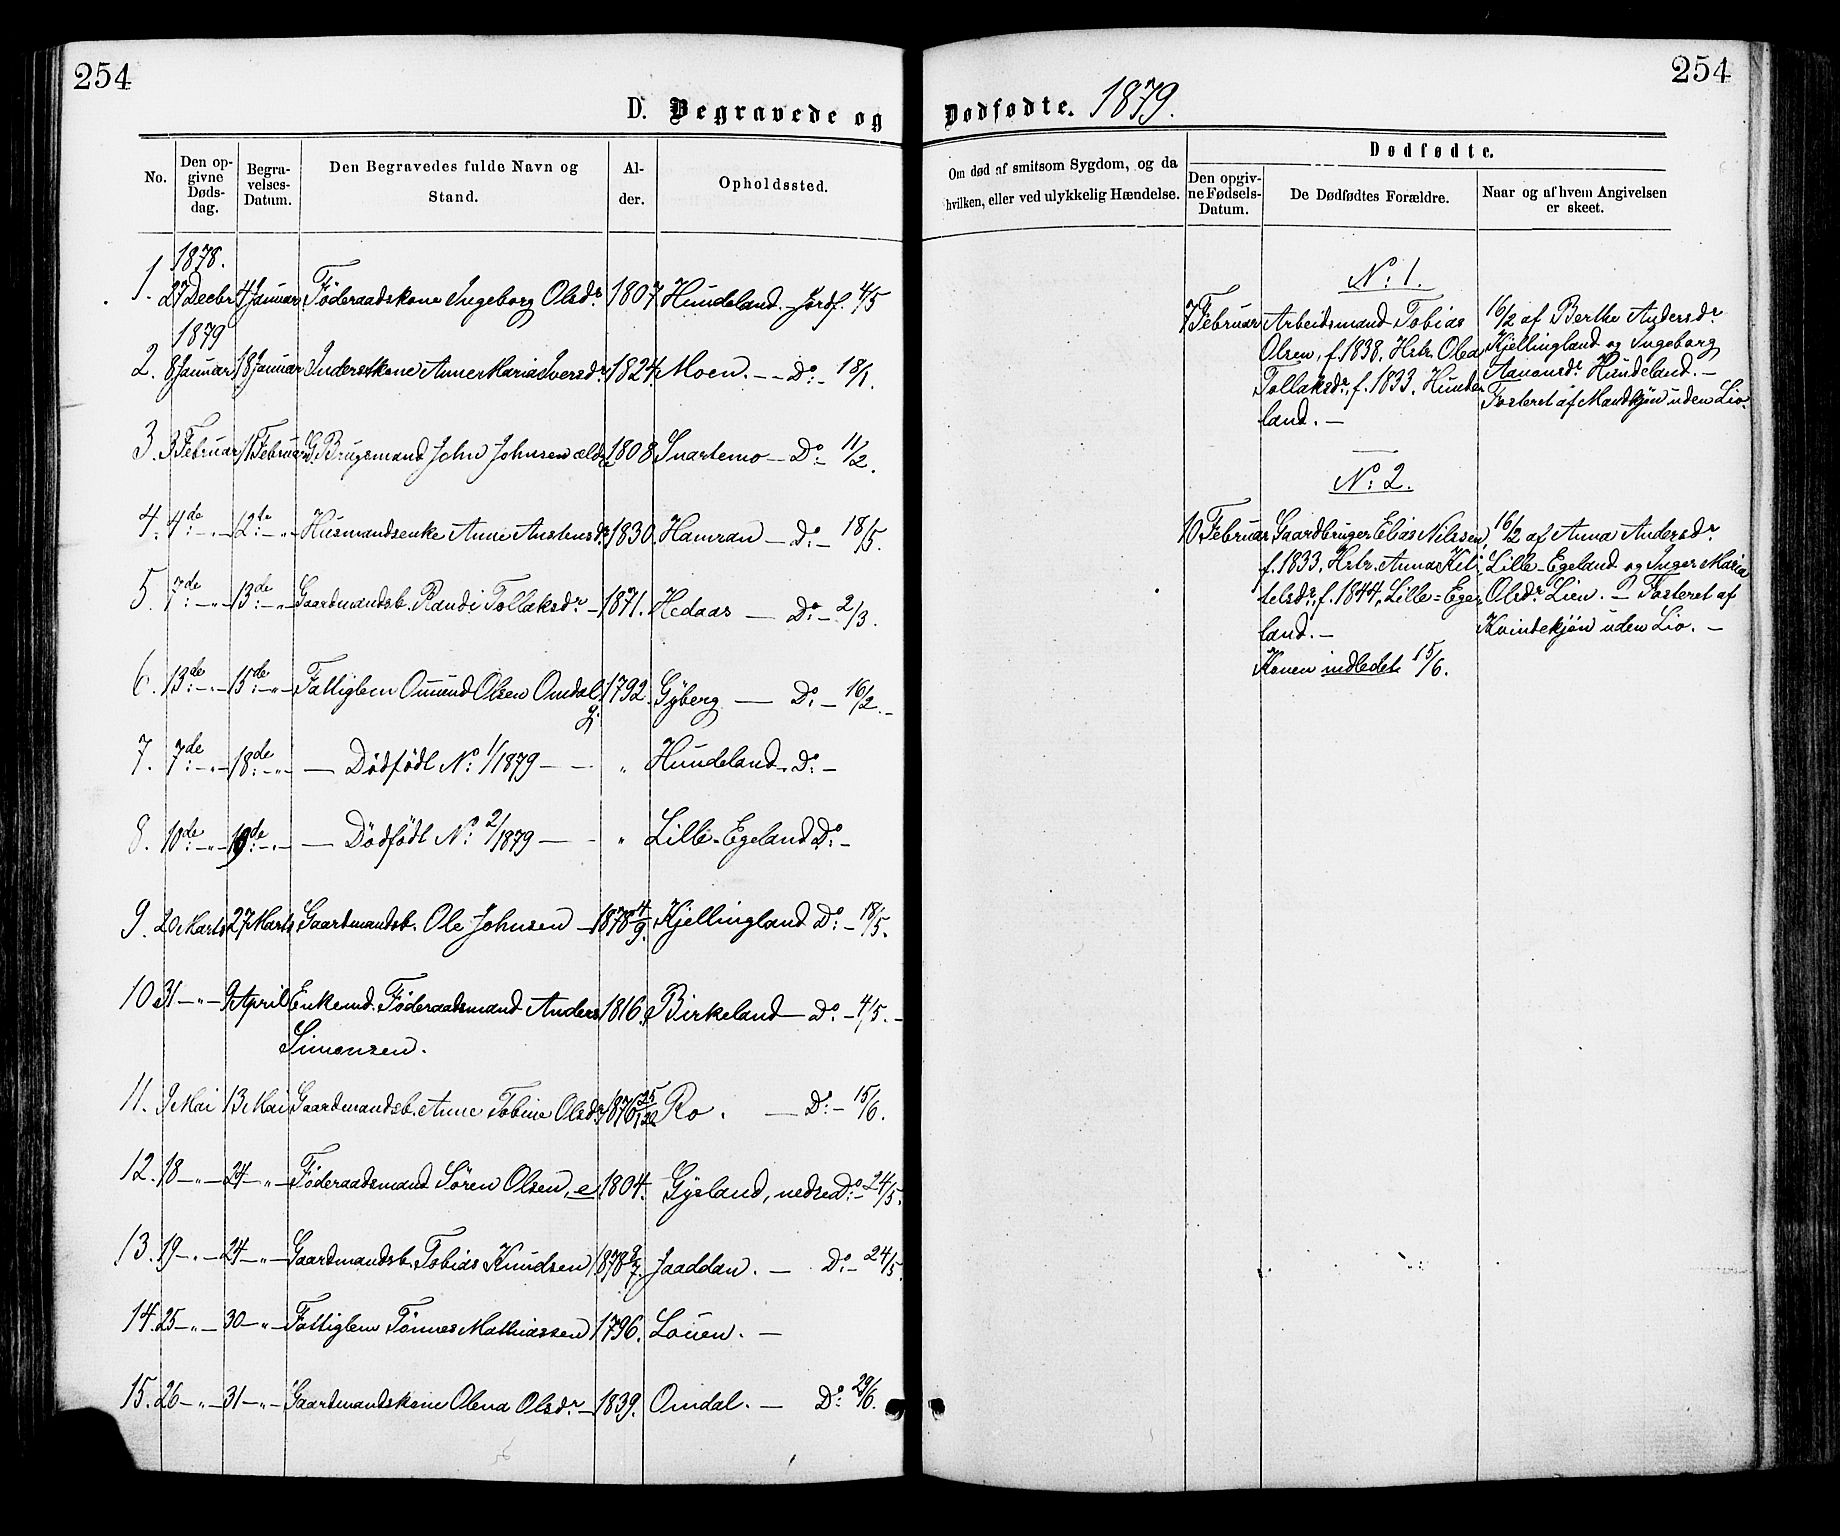 254
254
D. Begravede og Dødfødte. 1879.
No.
Den opgivne Dødsdag.
Begravelses-Datum.
Den Begravedes fulde Navn og Stand.
Alder.
Opholdssted.
Om død af smitsom Sygdom, og da hvilken, eller ved ulykkelig Hændelse.
Dødfødte.
Den opgivne Fødsels-Datum.
De Dødfødtes Forældre.
Naar og af hvem Angivelsen er skeet.
1878.
1. 27 Decbr 4 Januar Føderaadskone Ingeborg Olsdr. 1807 Hundeland. Jordf. 4/5
1879
2. 8 Januar 18 Januar Inderstkone Anne Maria Iversdr. 1824 Moen. — Do: — 18/1.
3. 3 Februar 11 Februar G. Brugsmand John Johnsen æld. 1808 Svartemo — Do: — 11/2.
4. 4de: — " — 12te: — " — Husmandsenke Anne Austensdr. 1830. Hamran — Do: — 18/5.
5. 7de: — " — 13de: — " — Gaardmandsb. Randi Tollaksdr. — 1871. Hedaas — Do: — 2/3.
6. 13de: — " — 15de: — " — Fattiglem Omund Olsen Omdal 1792. Gyberg — Do: — 16/2. —
7. 7de: — " — 18de: — " — — Dødfødt No: 1/1879 — — " Hundeland. Do: —
8. 10de: — " — 19de: — " — — Dödfödt No: 2/1879 — - " Lille-Egeland Do: —
9. 20 Marts 27 Marts Gaardmandsb. Ole Johnsen — 1878 4/9. Kjellingland Do: — 18/5.
10 31 — " — 9 April Enkemd. Føderaadsmand Anders 1816. Birkeland — Do: — 4/5. —
Simonsen.
11. 9 Mai 13 Mai Gaardmandsb. Anne Tobine Olsdr. 1876 25/12 Ro. — Do: — 15/6.
12. 18 — " — 24 — " — Føderaadsmand Søren Olsen, e 1804. Gyland, nedre Do: — 24/5.
13. 19 — " — 24 — " — Gaardmandsb. Tobias Knudsen 1878 9/7. Jaaddan. — Do: — 24/5.
14. 25 — " — 30 — " — Fattiglem Tönnes Mathiassen 1796. Louen. —
15. 26 — " — 31 — " — Gaardmandskone Olena Olsdr. — 1839. Omdal. — Do: 29/6.
No: 1.
7 Februar
Arbeidsmand Tobias
Olsen, f. 1838. Hstr. Olea
Tollaksdr., f. 1833. Hunde
land. —
16/2 af Berthe Andersdr.
Kjellingland og Ingeborg
Aanonsdr. Hundeland. —
Fosteret af Mandkjøn uden Liv.
No: 2.
10 Februar
Gaardbruger Elias Nilssen,
f. 1833. Hstr. Anna Kit
telsdr., f. 1844, Lille-Ege
land. —
Konen indledet 15/6.
16/2 af Anna Andersdr.
Lille-Egeland og Inger Maria
Olsdr. Lien. — Fosteret af
Kvindekjön uden Liv. —